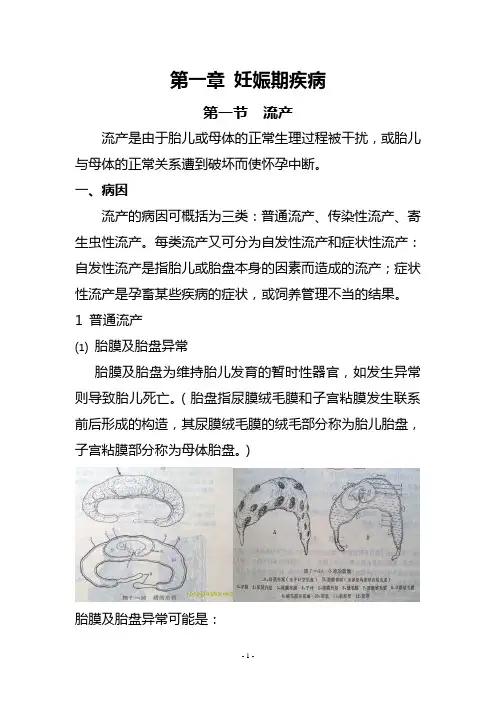 第一章 妊娠期疾病
第一节 流产
流产是由于胎儿或母体的正常生理过程被干扰，或胎儿
与母体的正常关系遭到破坏而使怀孕中断。
一、病因
流产的病因可概括为三类：普通流产、传染性流产、寄
生虫性流产。每类流产又可分为自发性流产和症状性流产：
自发性流产是指胎儿或胎盘本身的因素而造成的流产；症状
性流产是孕畜某些疾病的症状，或饲养管理不当的结果。
1 普通流产
⑴ 胎膜及胎盘异常
胎膜及胎盘为维持胎儿发育的暂时性器官，如发生异常
则导致胎儿死亡。（胎盘指尿膜绒毛膜和子宫粘膜发生联系
前后形成的构造，其尿膜绒毛膜的绒毛部分称为胎儿胎盘，
子宫粘膜部分称为母体胎盘。）
A
B
胎膜及胎盘异常可能是：
- 1 -